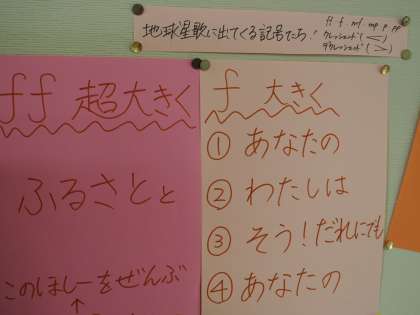 地球星歌に出てくる記号たち!
ff f mf mp p pp
クレッシェンド(<)
デクレッシェンド(>)
ff 超大きく
ふるさとと
このほしーをぜんぶ
↑
f 大きく
① あなたの
② わたしは
③ そう!だれにでも
④ あなたの